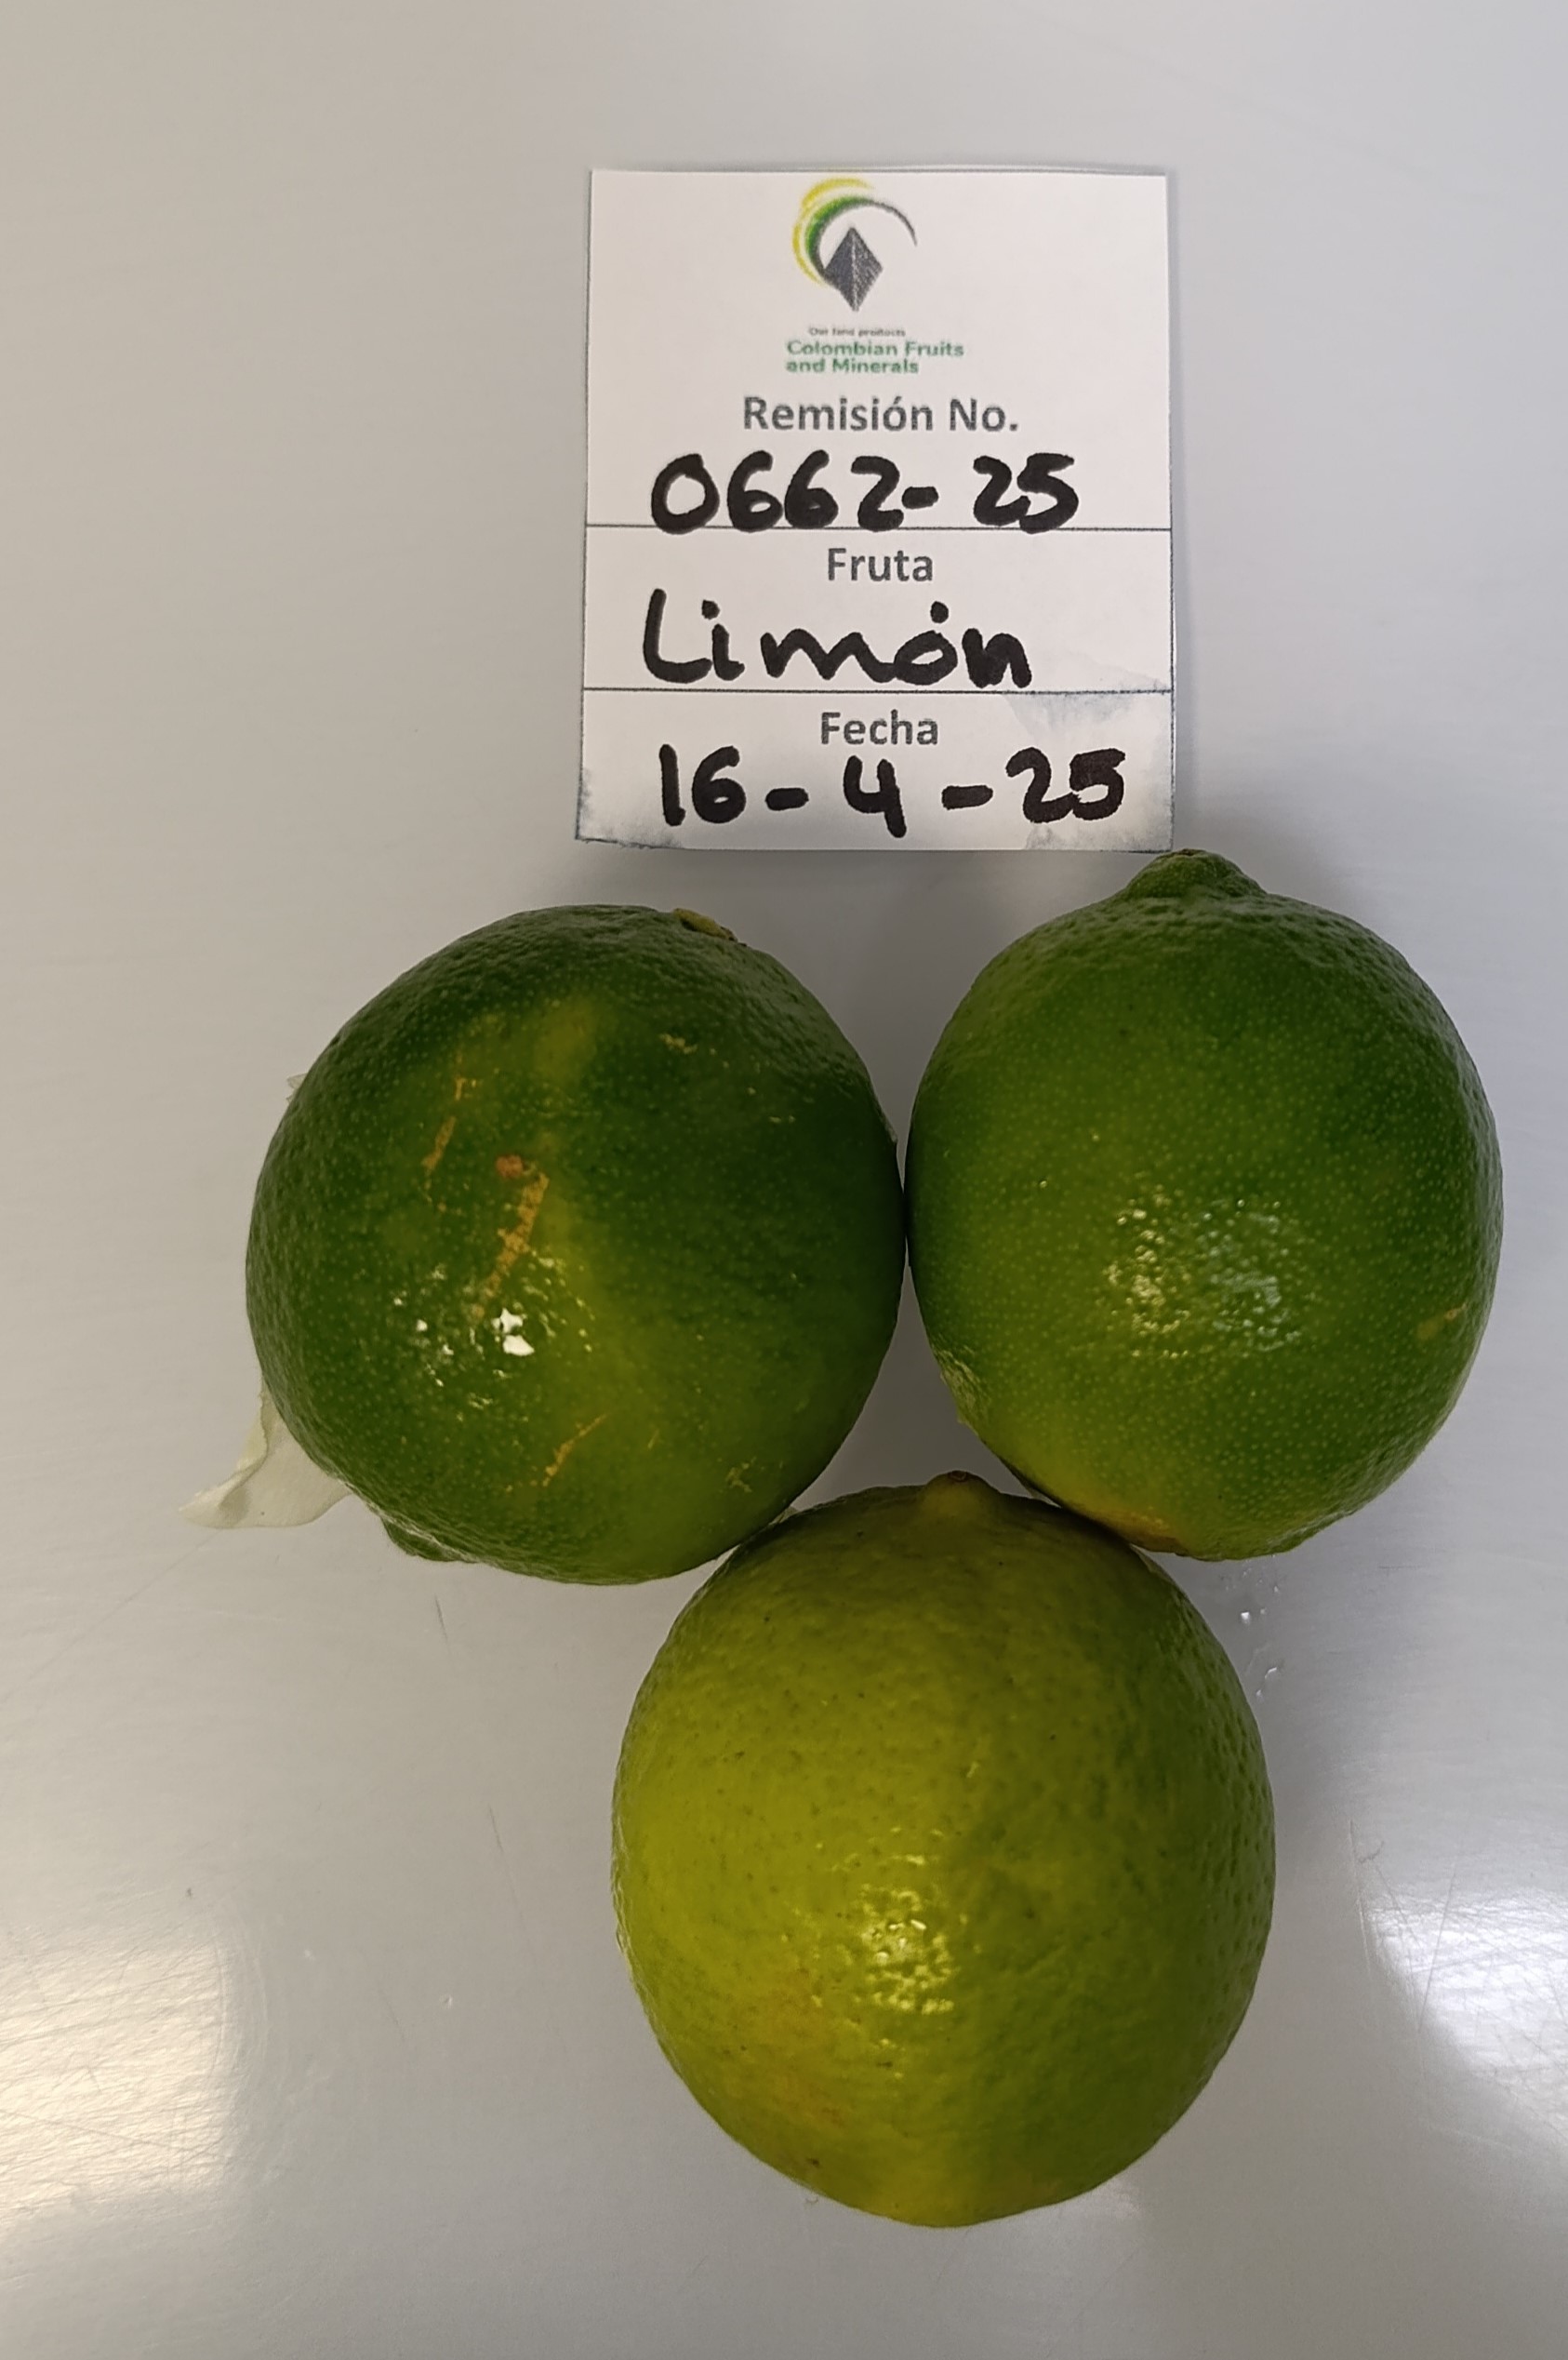 Our land products
Colombian Fruits
and Minerals
Remisión No.
0662-25
Fruta
Limón
Fecha
16-4-25